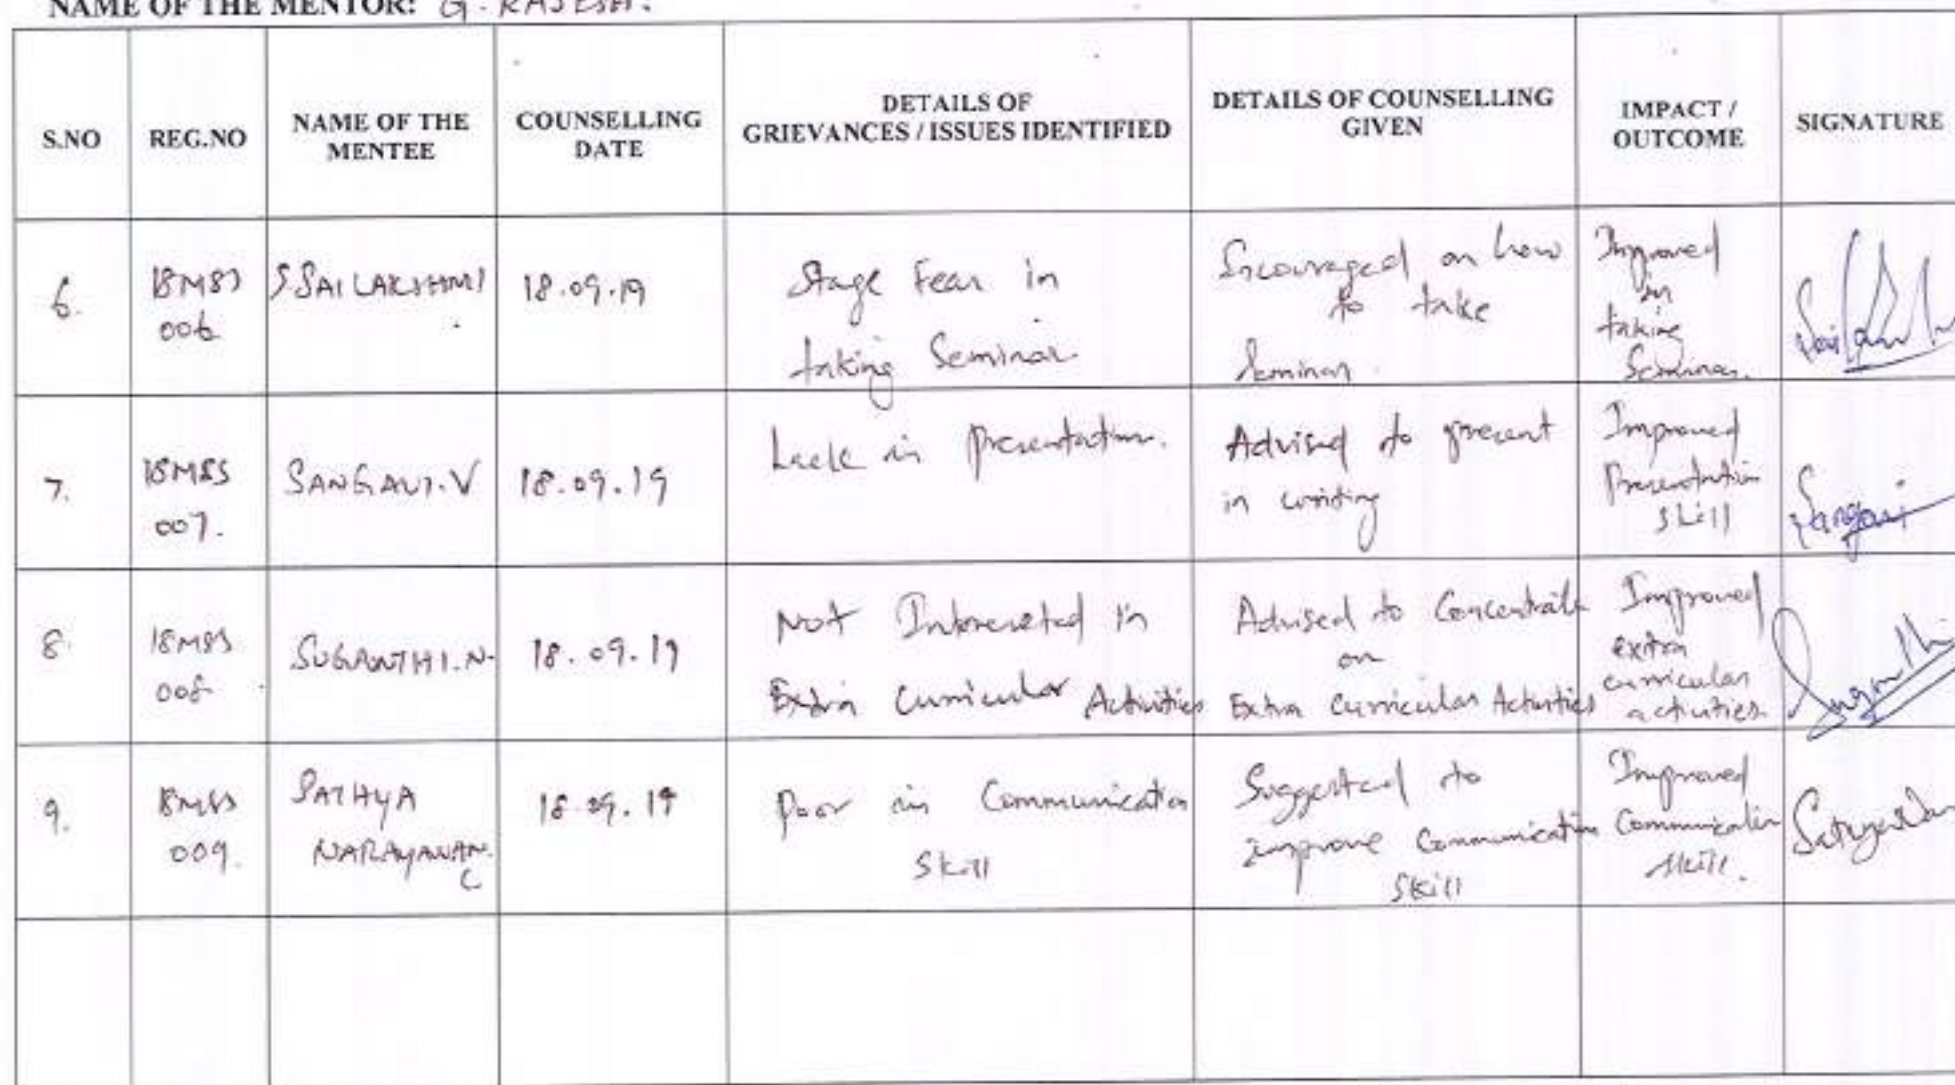 NAME OF THE MENTOR: G. RAJESH.
S.NO
REG.NO
NAME OF THE
MENTEE
COUNSELLING
DATE
DETAILS OF
GRIEVANCES / ISSUES IDENTIFIED
DETAILS OF COUNSELLING
GIVEN
IMPACT /
OUTCOME
SIGNATURE
6.
006
S SAILAKSHMI
18.09.19
Stage Fear in
taking Seminar.
Encouraged on how
to take
Seminar
Improved
in
taking
Seminar.
7.
007.
SANGAVI.V
18.09.19
Lack in Presentation.
Advised to present
in writing
Improved
Presentation
Skill
Sangavi
8.
008
SUGANTHI.N.
18.09.19
Not Interested in
Extra Curricular Activities
Advised to Concentrate
on
Extra Curricular Activities
Improved
extra
curricular
activities.
Suganthi
9.
009.
SATHYA
NARAYANAN.
C
18.09.19
Poor in Communication
Skill
Suggested to
improve Communication
Skill
Improved
Communication
skill.